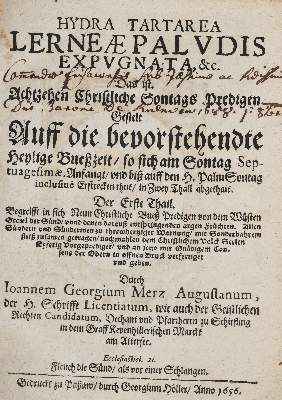 HYDRA TARTAREA
LERNEÆ PALVDIS
EXPVGNATA, &c.
Das ist.
Achtzehen Christliche Sontags Predigen
Gestelt
Auff die bevorstehendte
Heylige Bueßzeit / so sich am Sontag Sep-
tuagesimæ Anfangt / vnd biß auff den H. Palm Sontag
inclusivè Erstrecken thut / in Zwey Thail abgethait.
Der Erste Thail.
Begreifft in sich Neun Christliche Bueß Predigen von dem Wüsten
Grewl der Sünd / vnnd denen darauß entspringenden argen Früchten. Allen
Sündern vnd Sünderinnen zu threwhertziger Warnung / mit Sonderbahrem
fleiß zusamen getragen / nochmahlen dem Christlichem Volck Seelen
Eyferig Vorgesprengt / vnd an jetzo mit Gnädigem Con-
sens der Obern in offnen Druck verfertiget
vnd geben.
Durch
Ioannem Georgium Merz Augustanum,
der H. Schrifft Licentiatum, wie auch der Geistlichen
Rechten Candidatum, Dechant vnd Pfarrherrn zu Schörfling
in dem Graff Kevenhillerischen Marckt
am Attersee.
Ecclesiastici. 21.
Fleuch die Sünd / als vor einer Schlangen.
Gedruckt zu Passaw / durch Georgium Höller / Anno 1656.